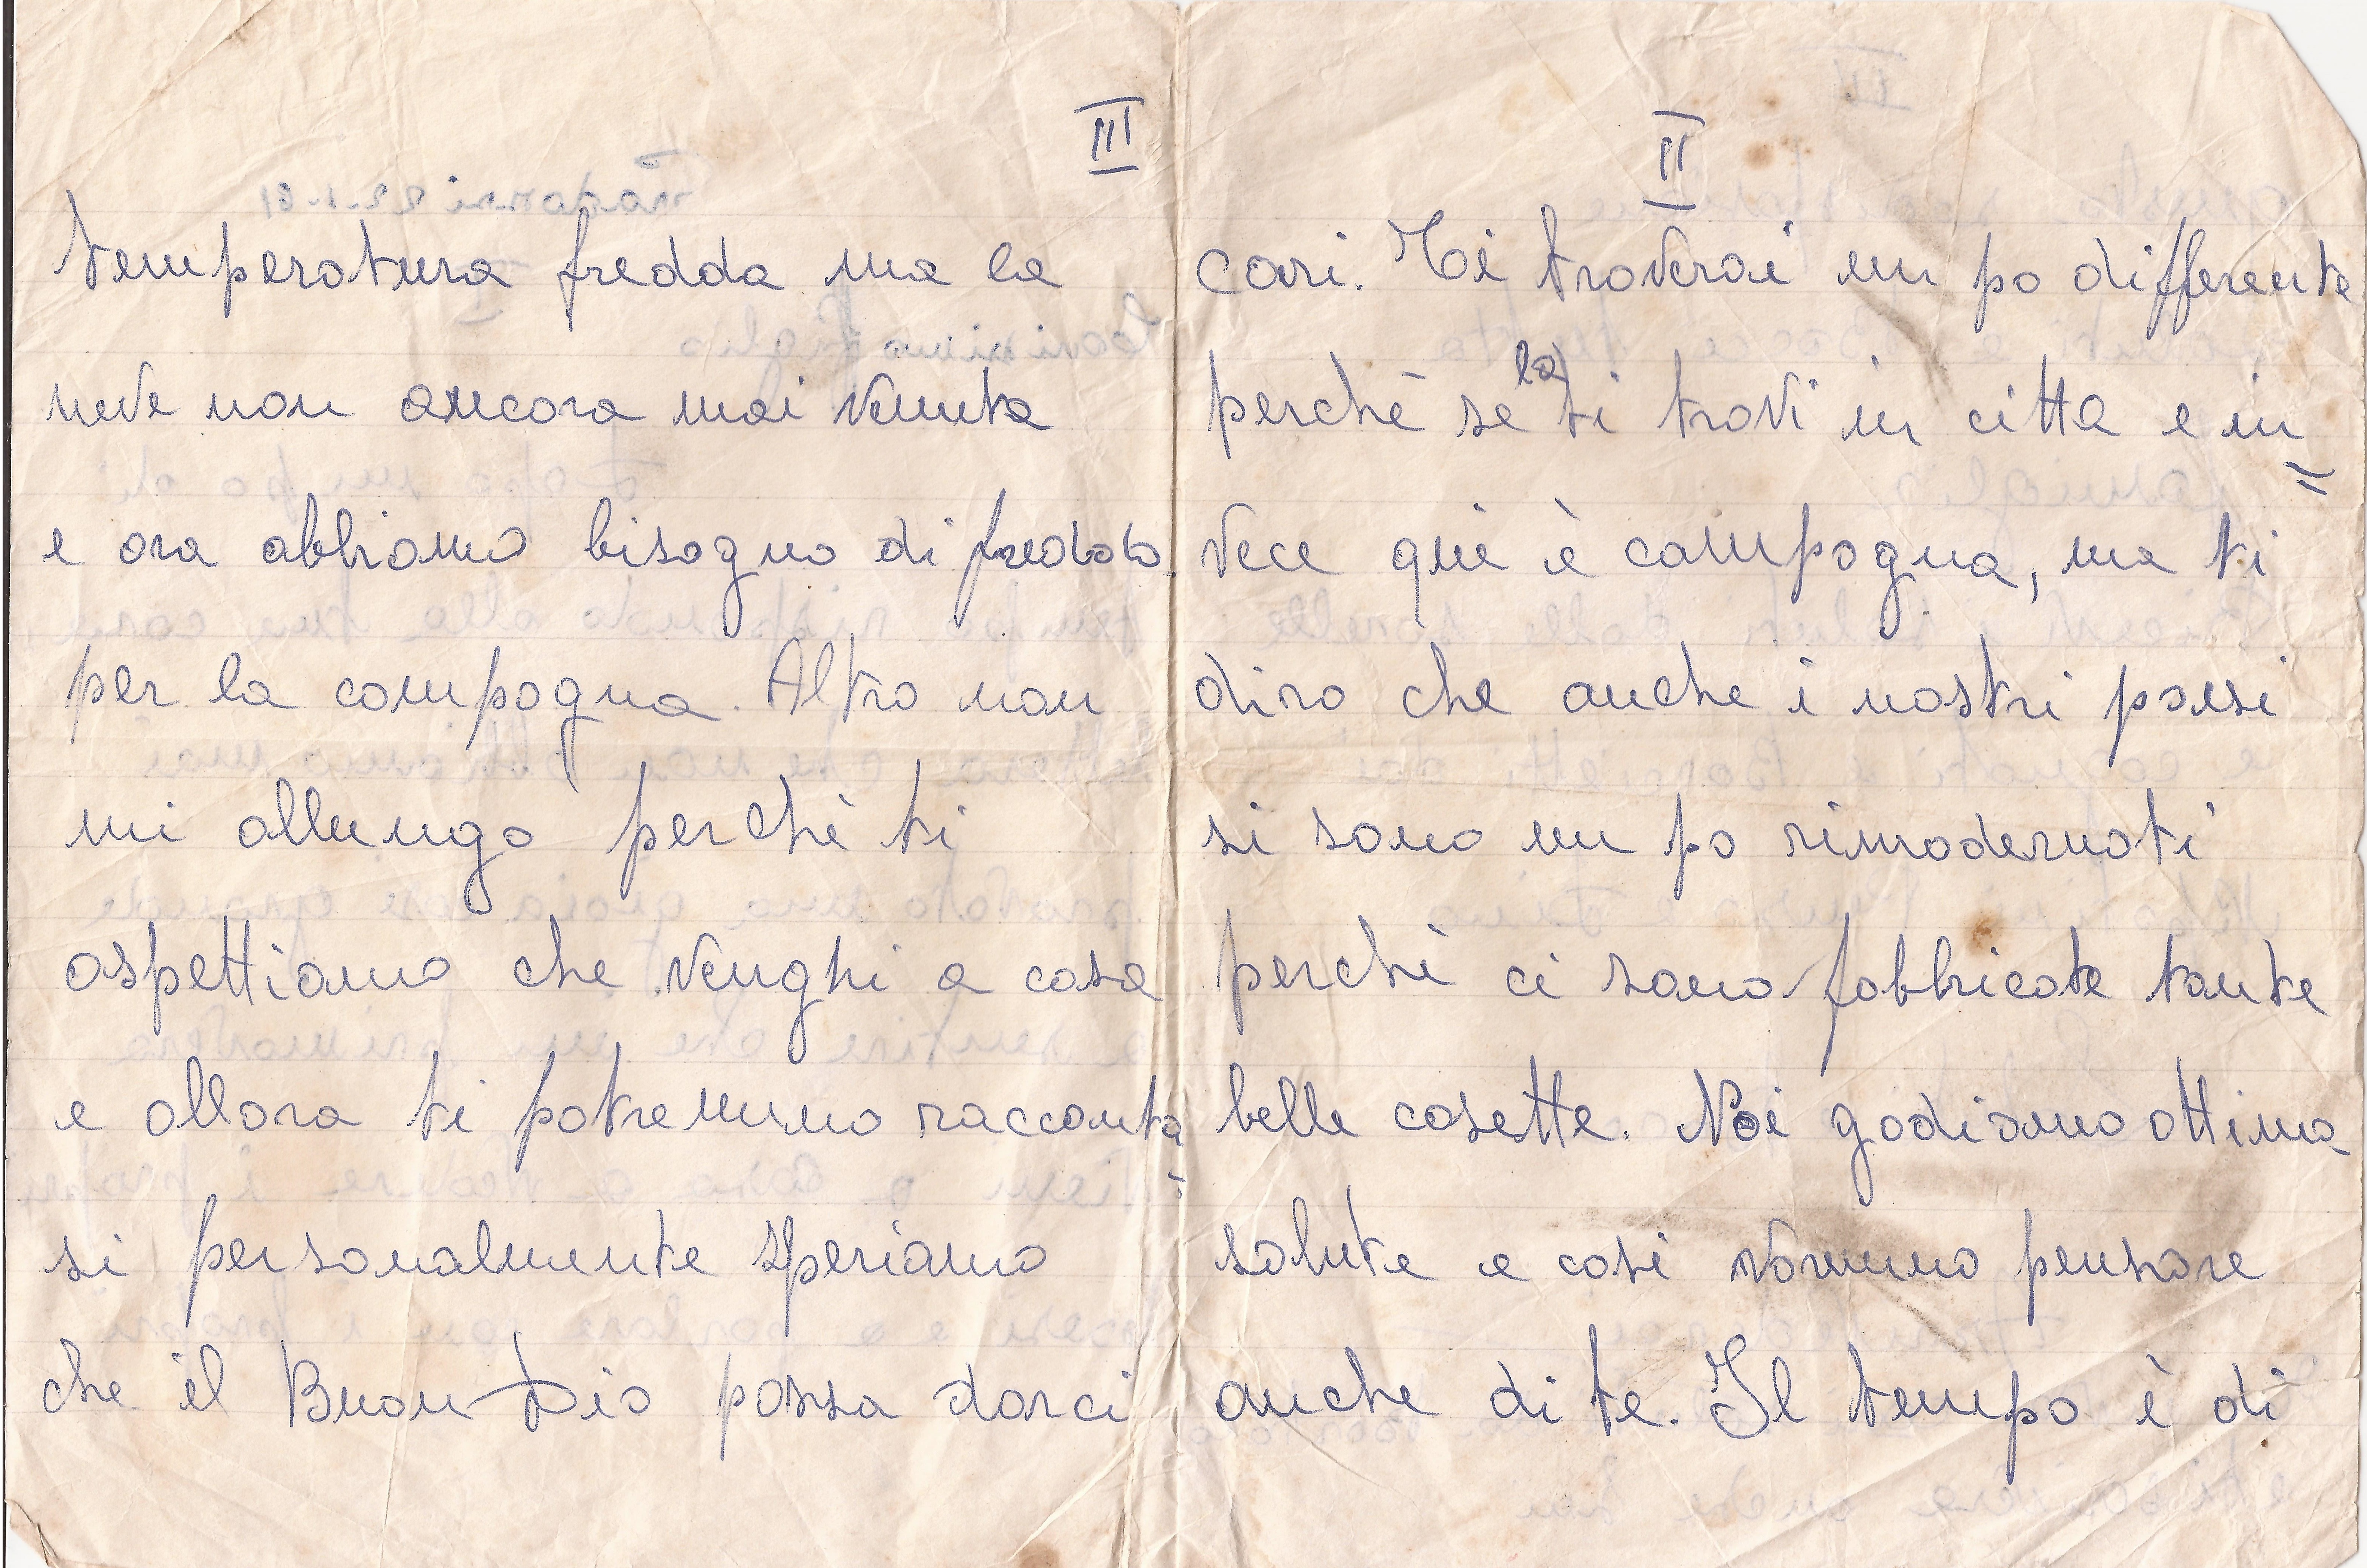 II
cari. Ti troverai un po differente
perchè se la ti trovi in citta e in=
vece qui è campagna, ma ti
diro che anche i nostri paesi
si sono un po rimodernati
perchè ci sono fabbricate tante
belle cosette. Noi godiamo ottima
salute e cosi voremmo pensare
anche di te. Il tempo è di
III
temperatura fredda ma la
neve non ancora mai venuta
e ora abbiamo bisogno di freddo
per la campagna. Altro non
mi allungo perchè ti
aspettiamo che venghi a casa
e allora ti potremmo racconta=
si personalmente speriamo
che il Buon Dio possa darci